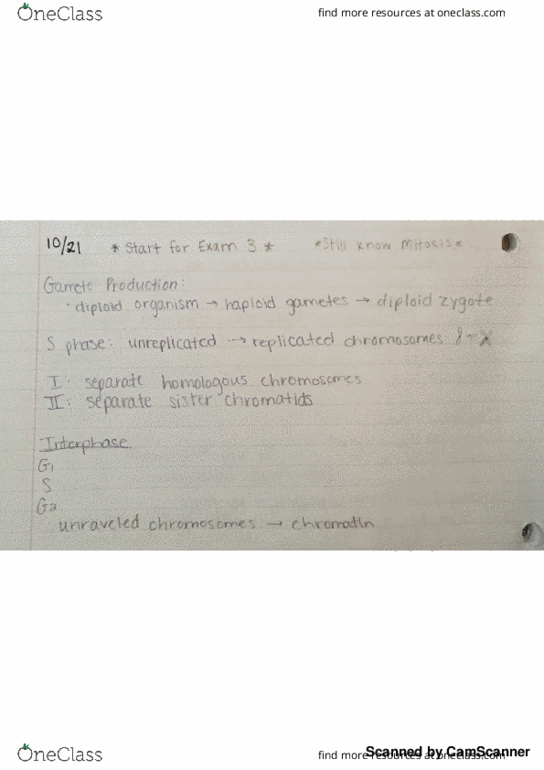 OneClass
find more resources at oneclass.com
10/21 * Start for Exam 3 * *Still know Mitosis*
Gamete Production:
· diploid organism → haploid gametes → diploid zygote
S phase: unreplicated → replicated chromosomes
I: separate homologous chromosomes
II: separate sister chromatids
Interphase
G1
S
G2
unraveled chromosomes → chromatin
OneClass
find more resources at oneclass.com
Scanned by CamScanner